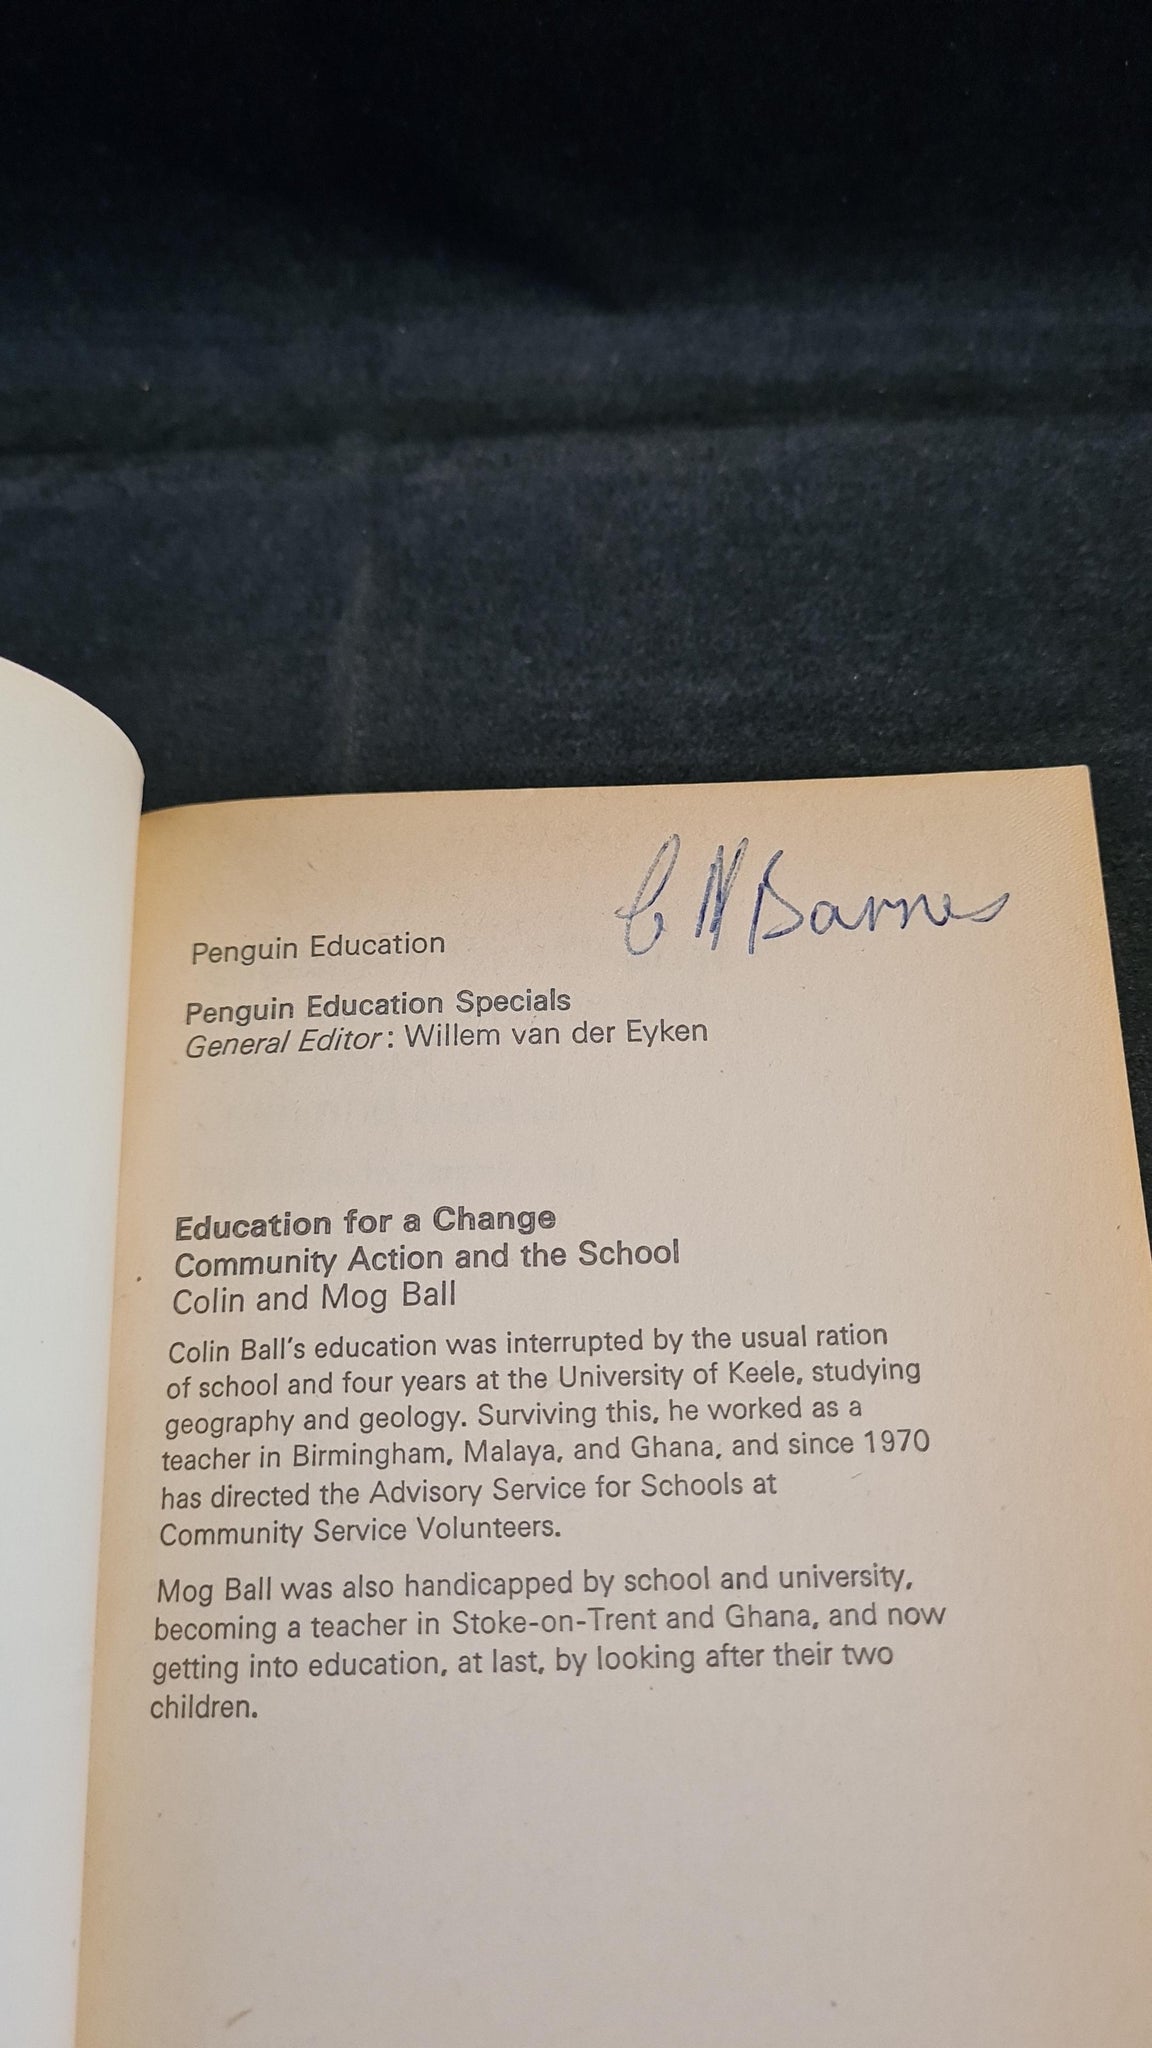 C N Barnes
Penguin Education
Penguin Education Specials
General Editor: Willem van der Eyken
Education for a Change
Community Action and the School
Colin and Mog Ball
Colin Ball's education was interrupted by the usual ration
of school and four years at the University of Keele, studying
geography and geology. Surviving this, he worked as a
teacher in Birmingham, Malaya, and Ghana, and since 1970
has directed the Advisory Service for Schools at
Community Service Volunteers.
Mog Ball was also handicapped by school and university,
becoming a teacher in Stoke-on-Trent and Ghana, and now
getting into education, at last, by looking after their two
children.